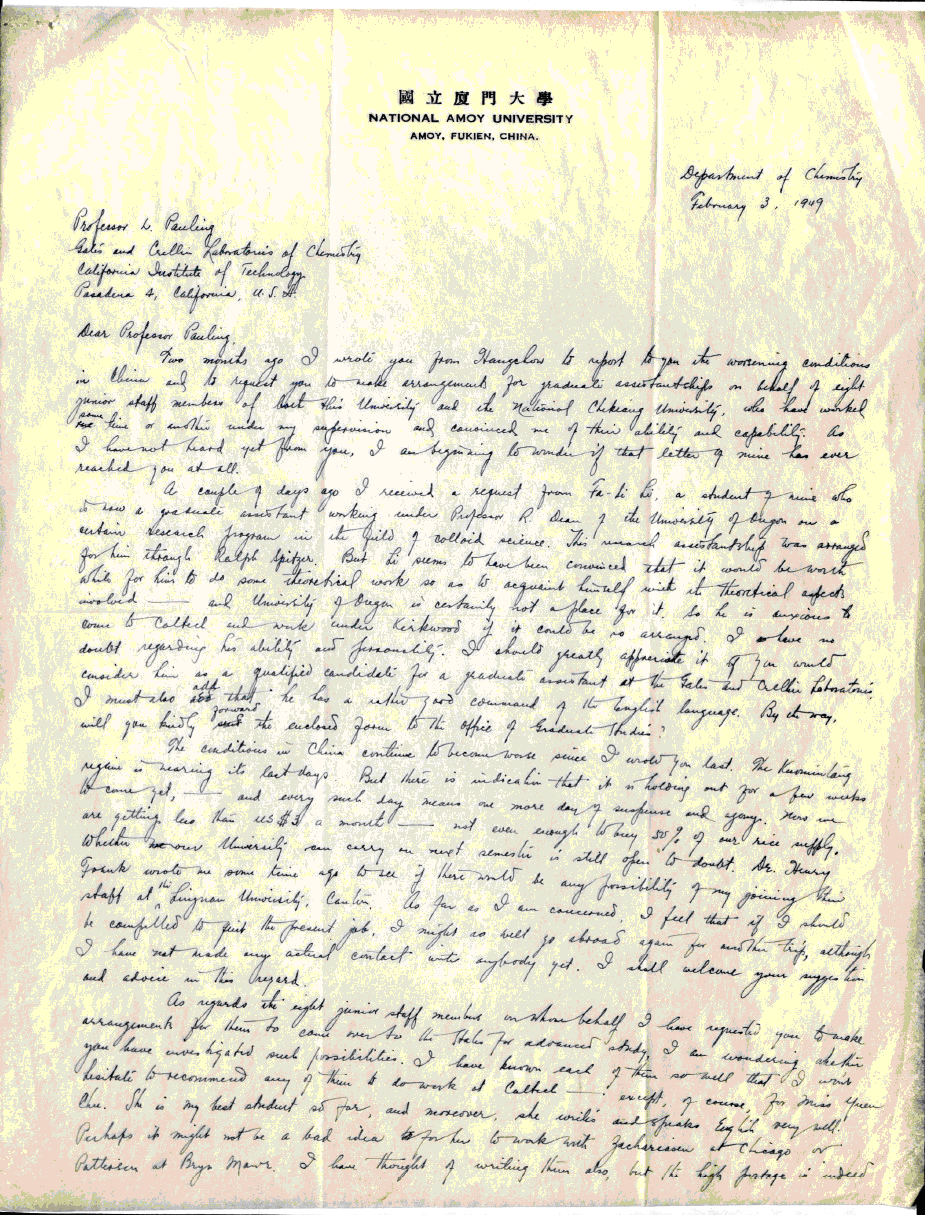 國立廈門大學
NATIONAL AMOY UNIVERSITY
AMOY, FUKIEN, CHINA.
Department of Chemistry
February 3, 1949
Professor L. Pauling
Gates and Crellin Laboratories of Chemistry
California Institute of Technology
Pasadena 4, California, U.S.A.
Dear Professor Pauling,
Two months ago I wrote you from Hangchow to report to you the worsening conditions
in China and to request you to make arrangements for graduate assistantships on behalf of eight
junior staff members of both this University and the National Chekiang University, who have worked
some time or another under my supervision and convinced me of their ability and capability. As
I have not heard yet from you, I am beginning to wonder if that letter of mine has ever
reached you at all.
A couple of days ago I received a request from Fa-Si Li, a student of mine who
is now a graduate assistant working under Professor R. Dean of the University of Oregon on a
certain research program in the field of colloid science. This research assistantship was arranged
for him through Ralph Spitzer. But Li seems to have been convinced that it would be worth
while for him to do some theoretical work so as to acquaint himself with the theoretical aspects
involved — and University of Oregon is certainly not a place for it. So he is anxious to
come to Caltech and work under Kirkwood if it could be so arranged. I have no
doubt regarding his ability and personality. I should greatly appreciate it if you would
consider him as a qualified candidate for a graduate assistant at the Gates and Crellin Laboratories.
I must also add that he has a rather good command of the English language. By the way,
will you kindly forward the enclosed form to the Office of Graduate Studies?
The conditions in China continue to become worse since I wrote you last. The Kuomintang
regime is nearing its last days. But there is indication that it is holding out for a few weeks
to come yet, — and every such day means one more day of suspense and agony. Here we
are getting less than US $3 a month — not even enough to buy 50% of our rice supply.
Whether our University can carry on next semester is still open to doubt. Dr. Henry
Frank wrote me some time ago to see if there would be any possibility of my joining their
staff at the Lingnan University, Canton. As far as I am concerned, I feel that if I should
be compelled to quit the present job, I might as well go abroad again for another trip, although
I have not made any actual contact with anybody yet. I shall welcome your suggestion
and advice in this regard.
As regards the eight junior staff members on whose behalf I have requested you to make
arrangements for them to come over to the States for advanced study, I am wondering whether
you have investigated such possibilities. I have known each of them so well that I won't
hesitate to recommend any of them to do work at Caltech — except, of course, for Miss Yuen
Chu. She is my best student so far, and moreover, she writes and speaks English very well.
Perhaps it might not be a bad idea for her to work with Zachariasen at Chicago or
Patterson at Bryn Mawr. I have thought of writing them also, but the high postage is indeed